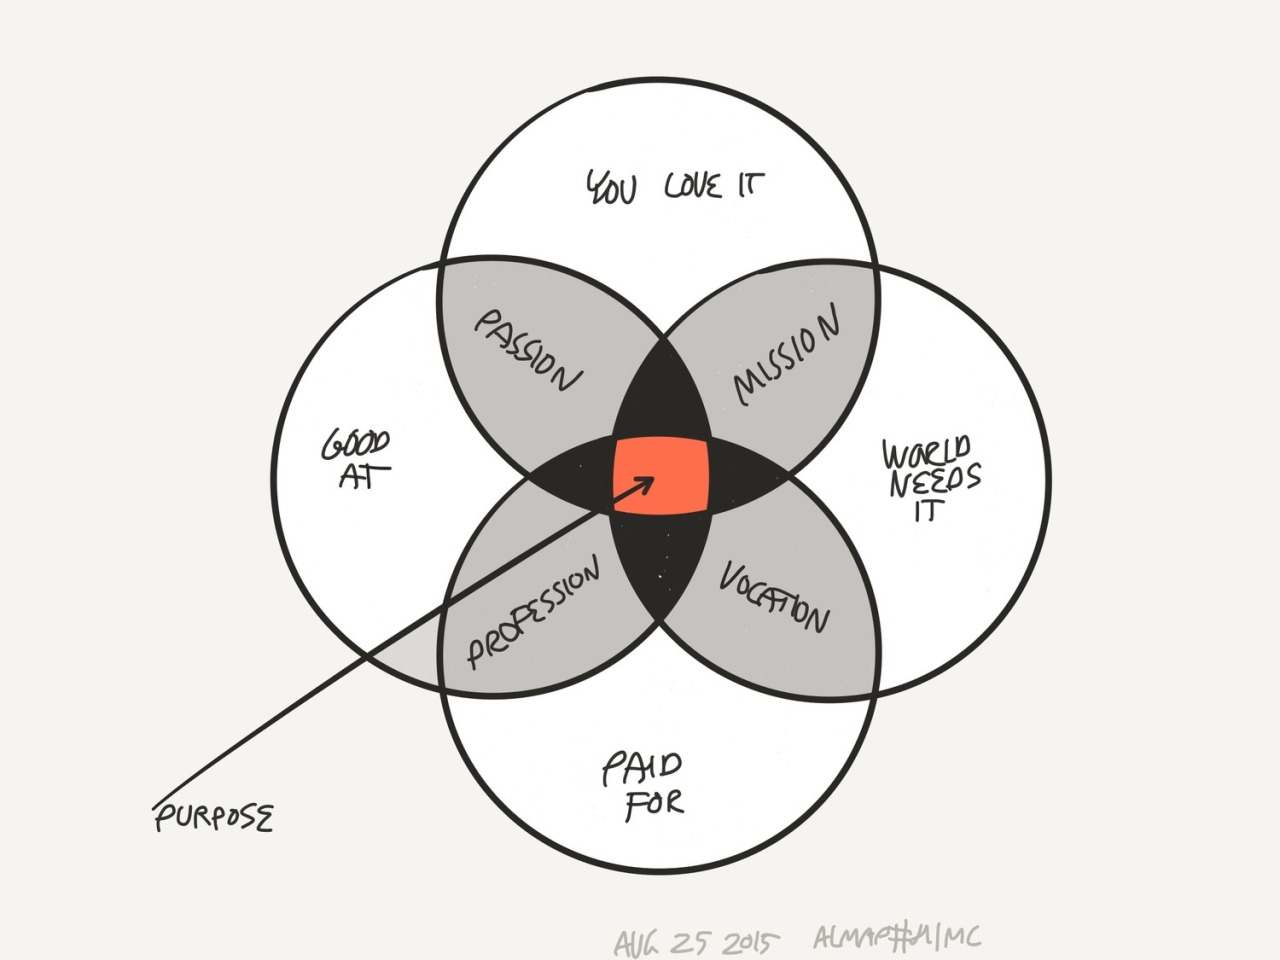 YOU LOVE IT
PASSION
MISSION
GOOD
AT
WORLD
NEEDS
IT
PROFESSION
VOCATION
PAID
FOR
PURPOSE
AUG 25 2015